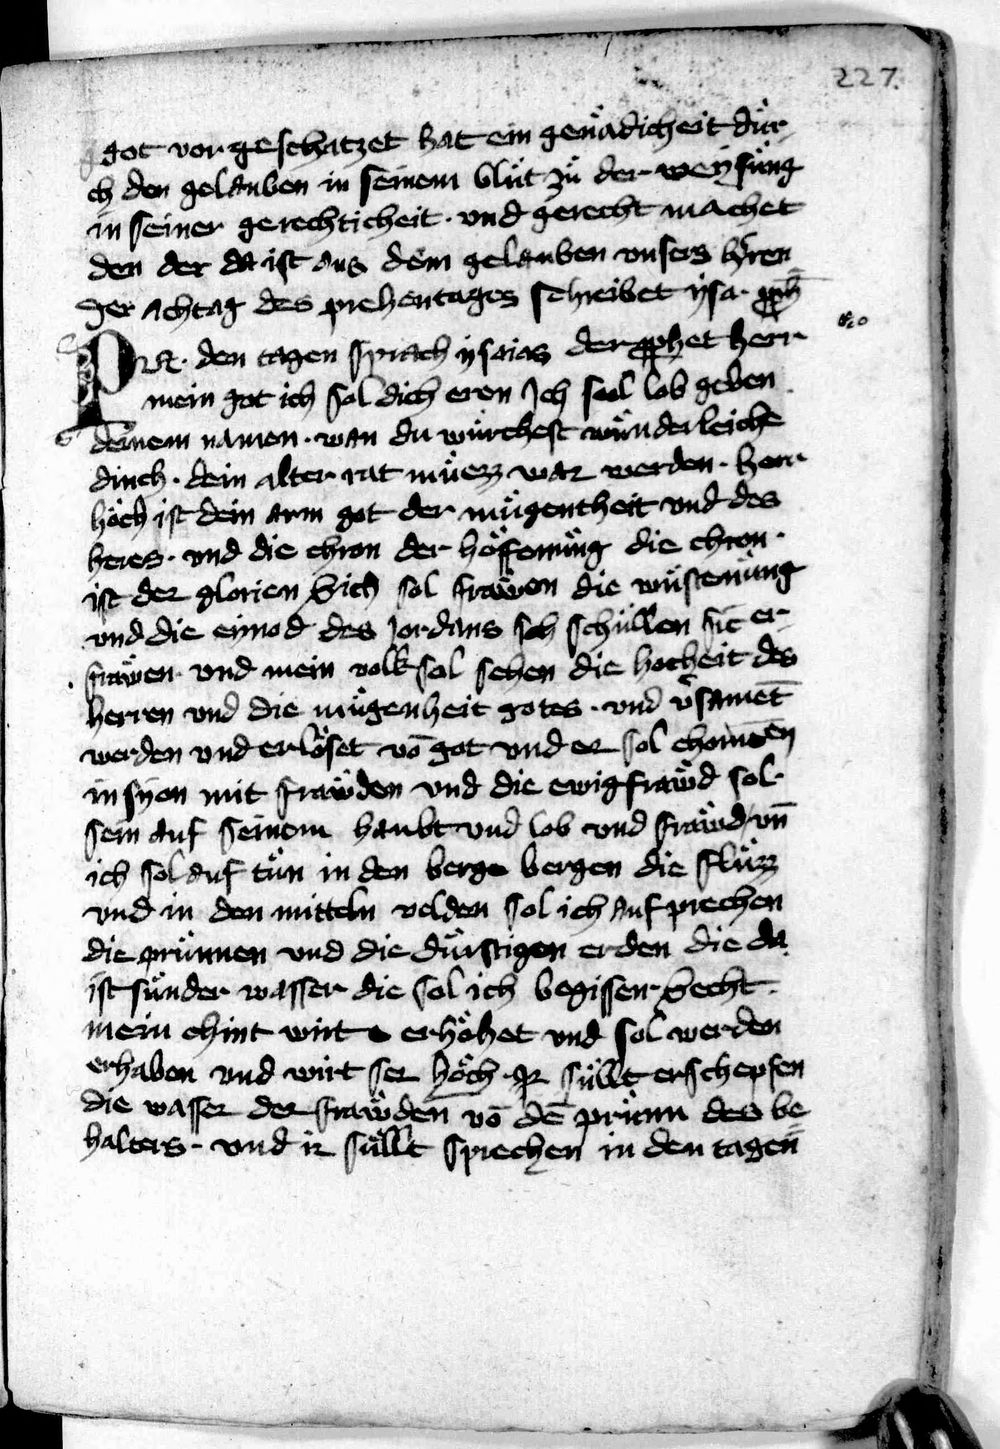 227.
got vor geschatzet hat ein genådicheit dur
ch den gelauben in seinem blůt zů der weysung
in seiner gerechticheit · und gerecht machet
den der da ist aus dem gelauben unsers herren
Der achtag des prehentages schreibet ysa· proph̄
In den tagen sprach ysaias der prophet Herr
mein got ich sol dich eren Ich sol lob geben
deinem namen · wan du würchest wůnderleiche
dinch · dein alter rat můezz war werden · herr
hőch ist dein arm got der můgentheit und des
heres · und die chron der hőffenůng die chron ·
ist der glorien Sich sol fråwen die wůstenůng
und die einod des Jordans Ich schüllen sic er
fråwen · und mein volk sol sehen die hocheit des
herren und die můgenheit gotes · und v̊samēt
werden und erlőset vō got und er sol chomēn
in syon mit fråwden und die ewig fråwd sol ·
sein auf seinem haubt und lob und fråwd / un̄
ich sol auf tůn in den berge bergen die flůzz
und in den mitteln velden sol ich auf prechen
die prünnen und die dürstigen erden die da
ist sůnder wasser die sol ich begissen · Secht ·
mein chint wirt erhőhet und sol werden
erhaben und wirt ser hőch · Ir süllt erschepfen
die wasser der fråwden vō dē prünn des be
halters · und ir süllt sprechen in den tagen